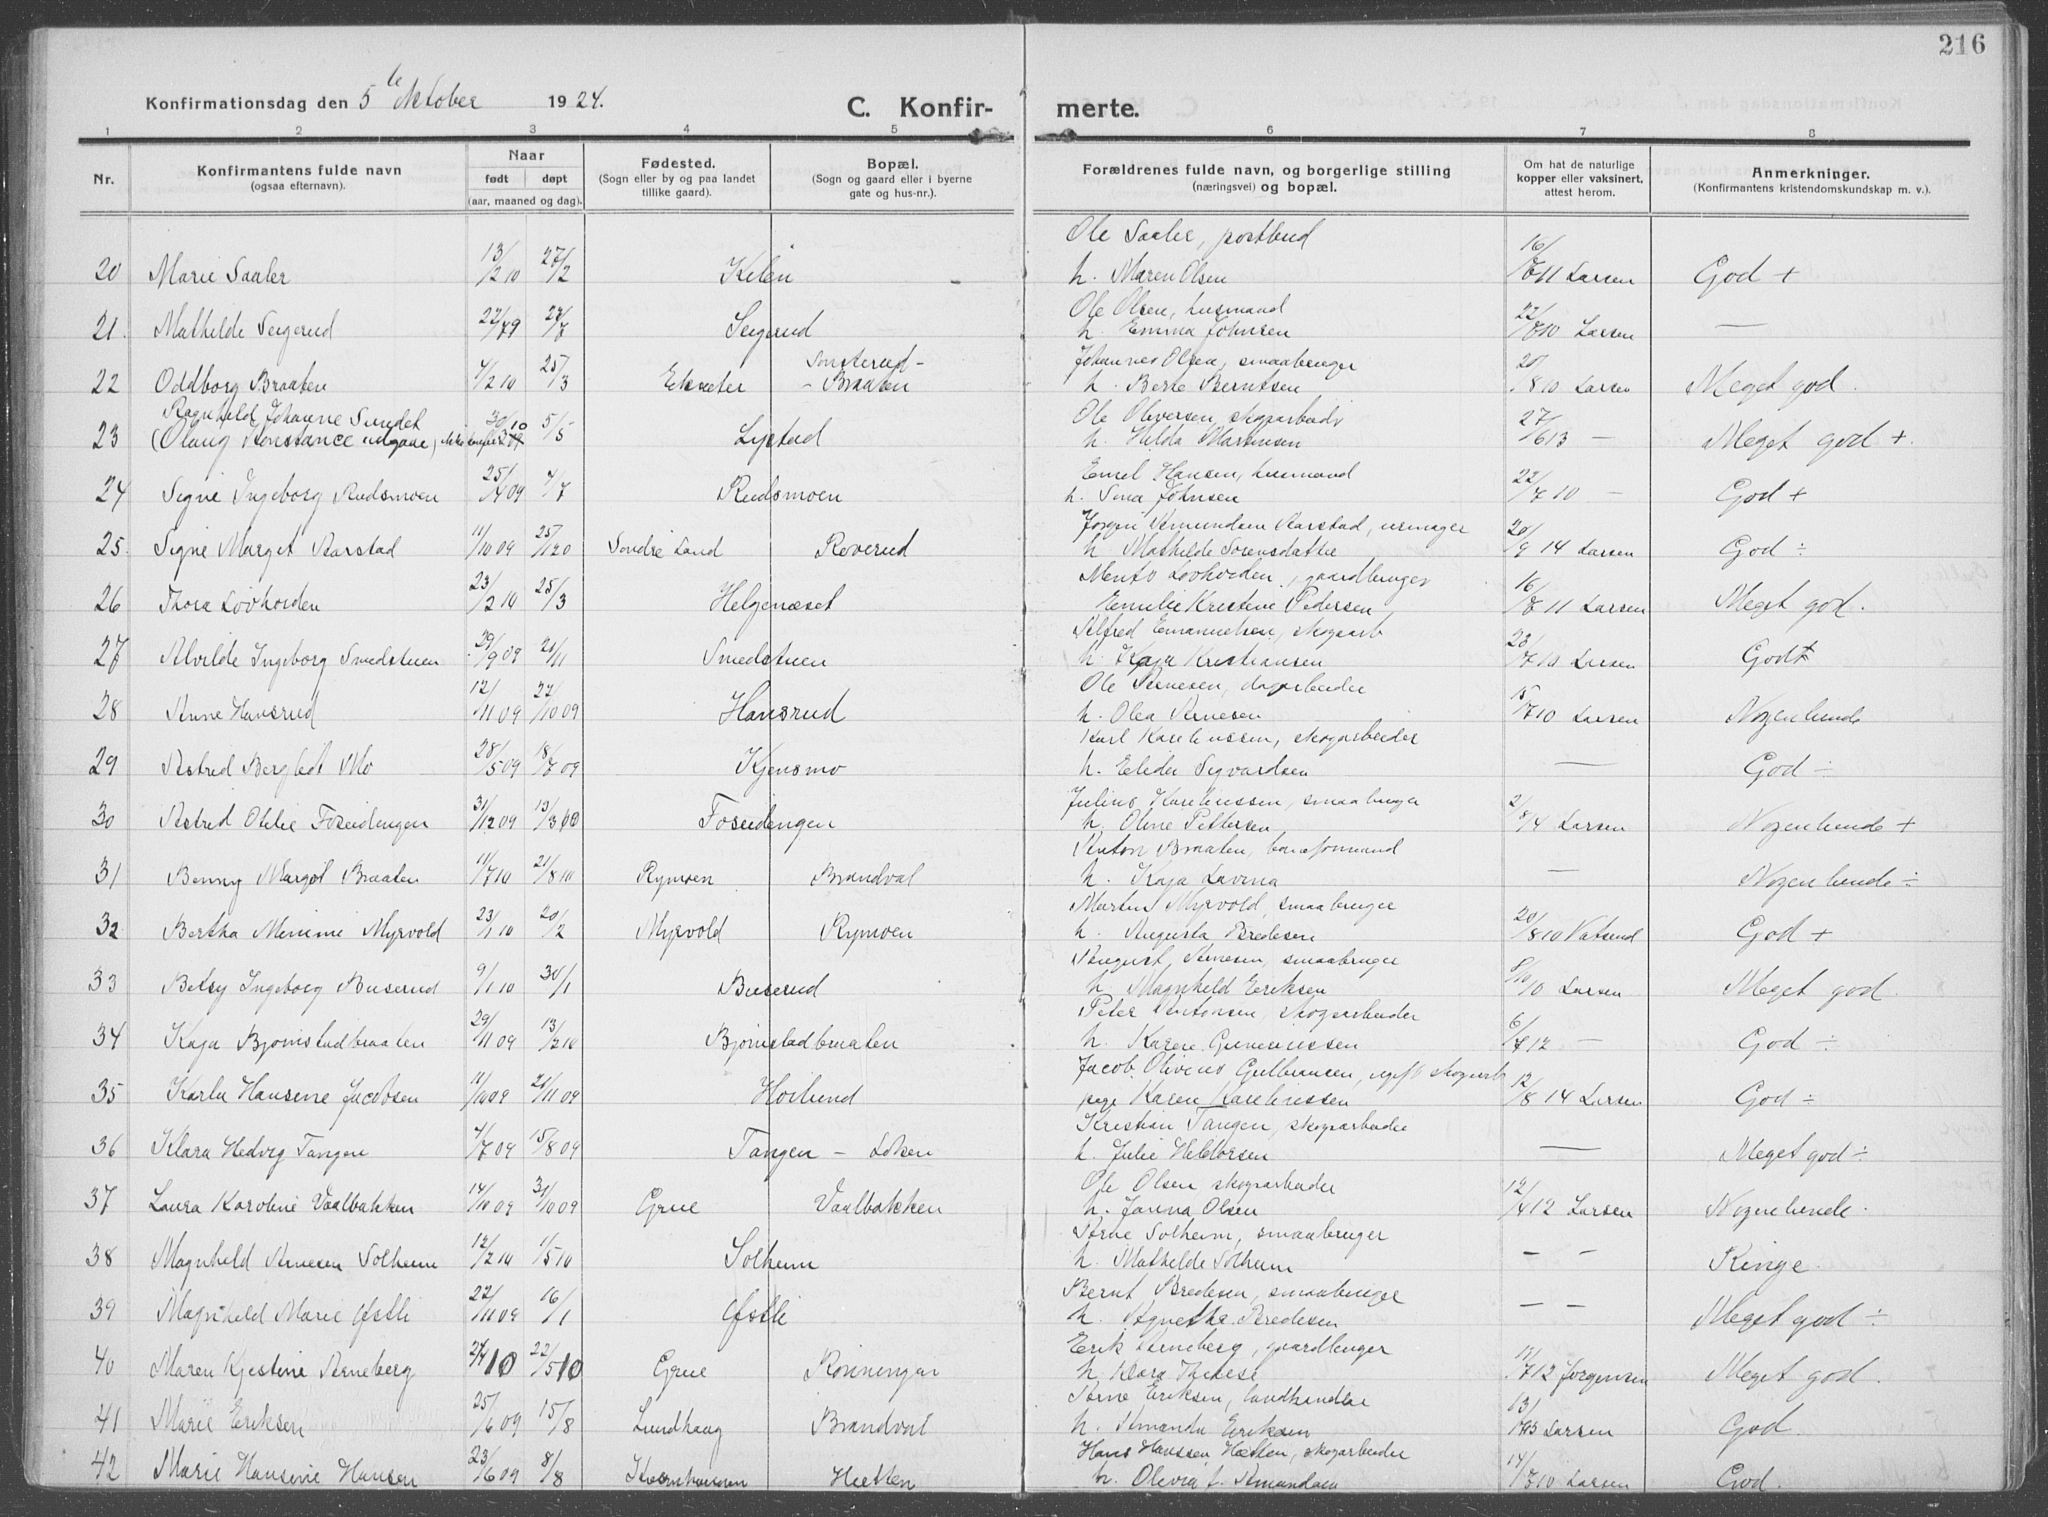 216
Konfirmationsdag den 5te Oktober 1924.
C. Konfirmerte.
1 2 3 4 5 6 7 8
Nr.
Konfirmantens fulde navn
(ogsaa efternavn).
Naar
født døpt
(aar, maaned og dag).
Fødested.
(Sogn eller by og paa landet
tillike gaard).
Bopæl.
(Sogn og gaard eller i byerne
gate og hus-nr.).
Forældrenes fulde navn, og borgerlige stilling
(næringsvei) og bopæl.
Om hat de naturlige
kopper eller vaksinert,
attest herom.
Anmerkninger.
(Konfirmantens kristendomskundskap m. v.).
Ole Saaler, postbud
20 Marie Saaler 13/2 10 27/2 Kilen h. Maren Olsen 16/8 11 Larsen God +
Ole Olsen, husmand
21. Mathilde Seigerud 22/7 9 Seigerud h. Emma Johnsen 22/7 10 Larsen —
Sonsterud- Johannes Olsen, smaabruger
22 Oddborg Braaten 4/2 10 25/3 - Braaten h. Berte Berntsen 20/8 10 Larsen Meget god.
Ragnhild Johanne Sundet Ole Oliversen, skogarbeidr
23 (Olaug Konstance utgaar) 5/5 Lystad h. Hilda Martinsen 27/6 13 — Meget god +.
Emil Hansen, husmand
24 Signe Ingeborg Rudsmoen 25/4 09 4/7 Rudsmoen h. Sina Johnsen 22/7 10 — God +
Jørgen Amundsen Aarstad, urmager
25. Signe Marget Aarstad 11/10 09 25/12 0 Søndre Land Roverud h. Mathilde Sørensdatter 20/9 14 Larsen God ÷
Løvhorden, gaardbruger
26 Thora Løvhorden 23/2 10 25/3 Helgenæset Emilie Kristine Pedersen 16/8 11 Larsen Meget god.
Alfred Emanuelsen, skogarb
27 Alvilde Ingeborg Smedstuen 29/9 09 21/11 Smedstuen h. Kaja Kristiansen 23/7 10 Larsen God +
Ole Arnesen, dagarbeider
28 Anne Hansrud 12/11 09 Hansrud h. Olea Arnesen 15/7 10 Larsen Nogenlunde
Karl Karelinssen, skogarbeider
29 Astrid Bergliot Mo 28/5 09 18/7 09 Kjensmo h. Elida Sigvardsen — God ÷
Julius Karelinssen, smaabruger
30 Astrid Otilie Foseidengen 31/12 09 13/3 10 Foseidengen h. Oline Pettersen 2/8 14 Larsen Nogenlunde +
Anton Braaten, baneformand
31 Benny Margot Braaten 11/7 10 21/8 10 Rymoen Brandval h. Kaja Lavina — Nogenlunde ÷
Martin Myrvold, smaabruger
32 Bertha Minimi Myrvold 23/1 10 20/2 Myrvold Rymoen h. Augusta Bredesen 20/8 10 Vatsend God +
August Arnesen, smaabruger
33 Betsy Ingeborg Buserud 9/1 10 30/1 Buserud h. Magnhild Eriksen 5/10 10 Larsen Meget god.
Peter Antonsen, skogarbeider
34 Kaja Bjørnstadbraaten 29/11 09 13/2 10 Bjørnstadbraaten h. Karen Gunerussen 6/7 12 — God ÷
Jacob Olivius Gulbransen, ugift skogarb
35 Karla Hansine Jacobsen 11/10 09 21/11 09 Hoilund pige Karen Karelinssen 12/8 14 Larsen God ÷
Kristian Tangen, skogarbeider
36 Klara Hedvig Tangen 4/7 09 15/8 09 Tangen - Løken h. Julie Heldorsen — Meget god ÷
Ole Olsen, skogarbeider
37 Laura Karoline Vaalbakken 14/10 09 31/10 09 Grue Vaalbakken h. Janna Olsen 12/4 12 Larsen Nogenlunde.
Arne Solheim, smaabruger
38 Magnhild Arnesen Solheim 12/2 10 1/5 10 Solheim h. Mathilde Solheim — — Ringe.
Bernt Bredesen, smaabruger
39 Magnhild Marie Østli 22/11 09 16/1 Østli h. Agnethe Bredesen — — Meget god ÷
Erik Arneberg, gaardbruger
40 Maren Kjestine Arneberg 24/4 10 22/5 10 Grue Rønningen h. Klara Therese 17/7 12 Jørgensen Meget god.
Arne Eriksen, landhandler
41 Marie Eriksen 25/6 09 15/8 Lundhaug Brandval h. Amanda Eriksen 13/ Larsen God.
Hans Hanssen Hætten, skogarbeider
42 Marie Hansine Hansen 23/6 09 8/8 Hætten h. Olivia f. Amundsen 14/7 10 Larsen God.